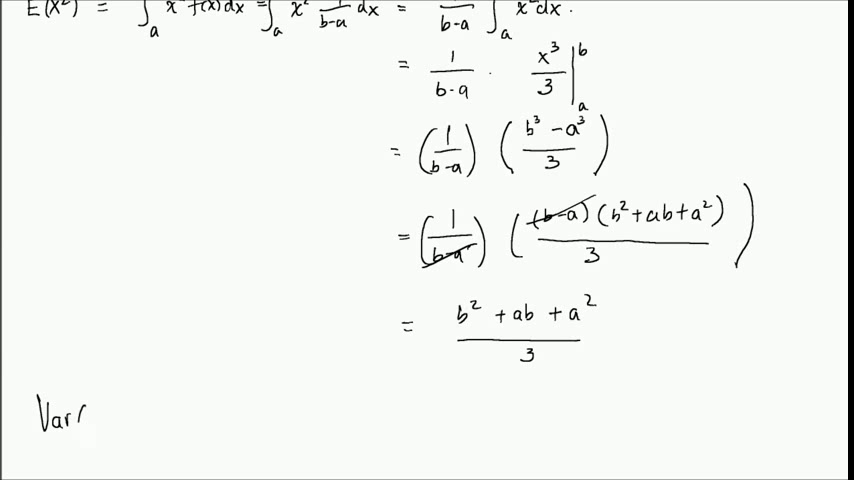 E(X²) = ∫ₐ x² f(x) dx = ∫ₐ x² 1/(b-a) dx = 1/(b-a) ∫ₐ x² dx.
= 1/(b-a) · x³/3 |ₐᵇ
= (1/(b-a)) ((b³ - a³)/3)
= (1/(b-a)) ((b-a)(b² + ab + a²)/3)
= (b² + ab + a²)/3
Var(